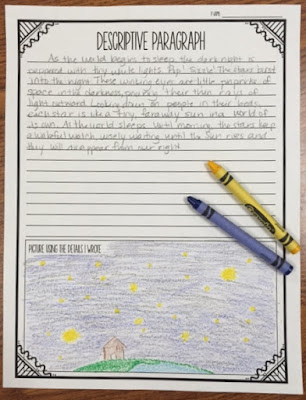 NAME
DESCRIPTIVE PARAGRAPH
As the world begins to sleep, the dark night is
with tiny white lights. Pop! The stars burst
into the night. These winking eyes are little pinpricks of
space in the darkness, their thin rays of
light outward. Looking down on people in their beds,
each star is like a tiny, faraway sun in a world of
its own. As the world sleeps until morning, the stars keep
a watchful watch, wisely waiting until the sun rises and
they will disappear from our sight.
PICTURE USING THE DETAILS I WROTE